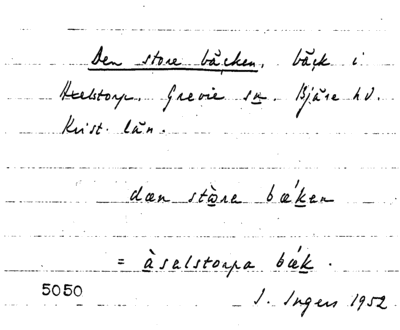 Den store bäcken, bäck i
Axelstorp. Grevie sn. Bjäre hd.
Krist. län.
dæn stòre bǽken
= àsalstorpa bǽk.
5050
I. Ingers 1952